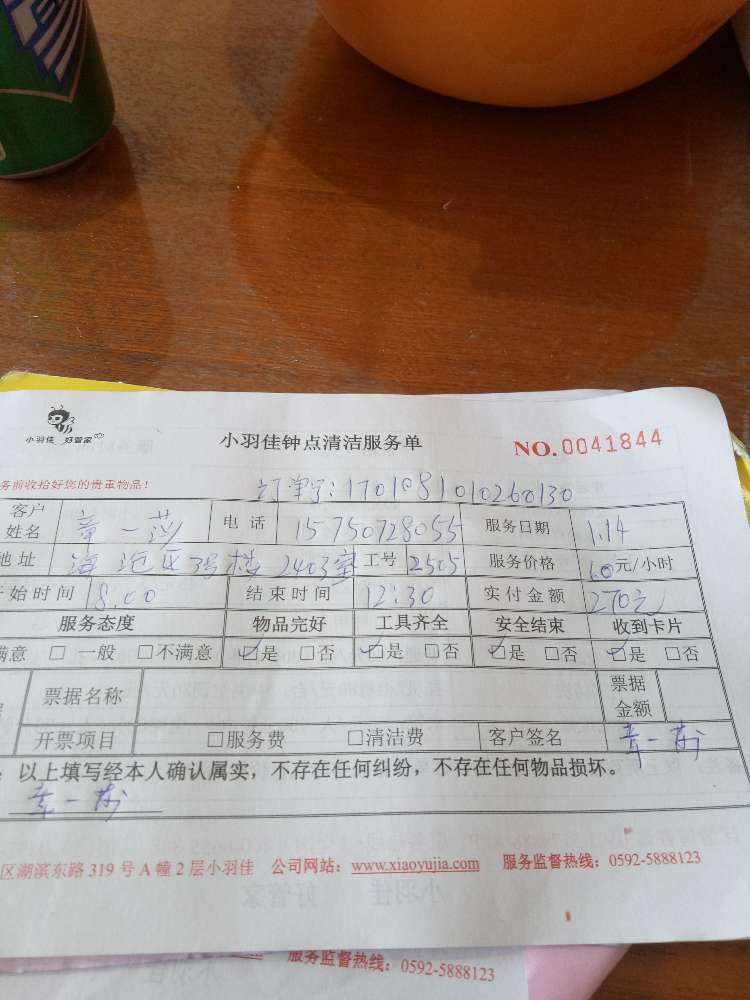 小羽佳 好管家
小羽佳钟点清洁服务单
NO.0041844
务前收拾好您的贵重物品！
订单号：1701081010260130
客户姓名 章一 电话 15750728055 服务日期 1.14
地址 海沧区3号楼2403室 工号 2505 服务价格 60元/小时
开始时间 8:00 结束时间 12:30 实付金额 270元
服务态度 物品完好 工具齐全 安全结束 收到卡片
满意 □ 一般 □不满意 ☑是 □否 ☑是 □否 ☑是 □否 ☑是 □否
票据名称 票据金额
开票项目 □服务费 □清洁费 客户签名 章一
：以上填写经本人确认属实，不存在任何纠纷，不存在任何物品损坏。
章一
区湖滨东路319号A幢2层小羽佳 公司网站：www.xiaoyujia.com 服务监督热线：0592-5888123
服务监督热线：0592-5888123